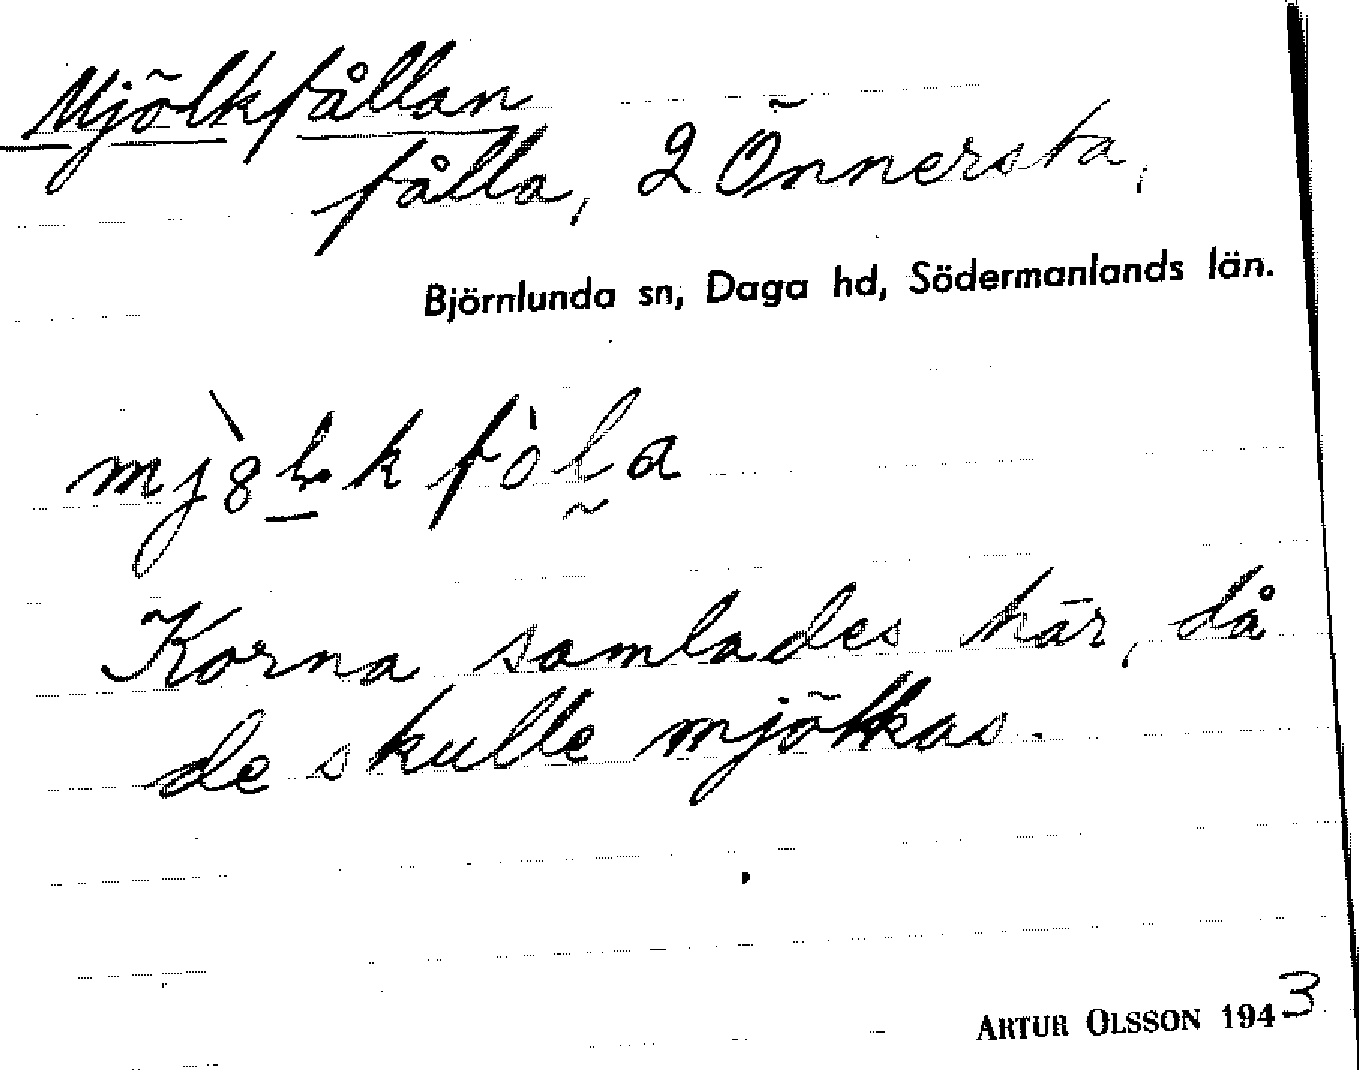 Mjölkfållan
fålla, 2 Önnersta,
Björnlunda sn, Daga hd, Södermanlands län.
Korna samlades här, då
de skulle mjölkas.
ARTUR OLSSON 1943